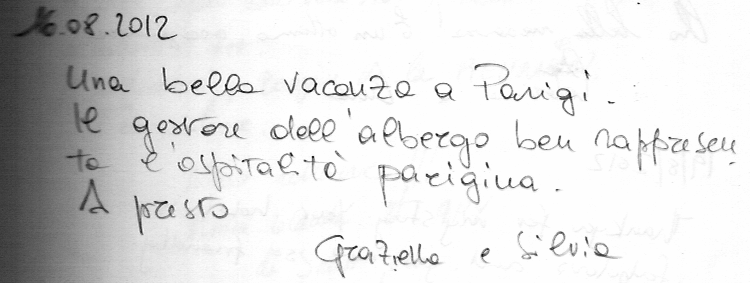 16.08.2012
Una bella vacanza a Parigi.
Il gestore dell'albergo ben rappresen
ta l'ospitalità parigina.
A presto
Graziella e Silvia